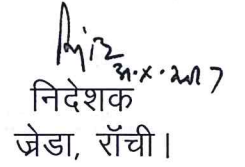 31.X.2017
निदेशक
ज्रेडा, रॉची।